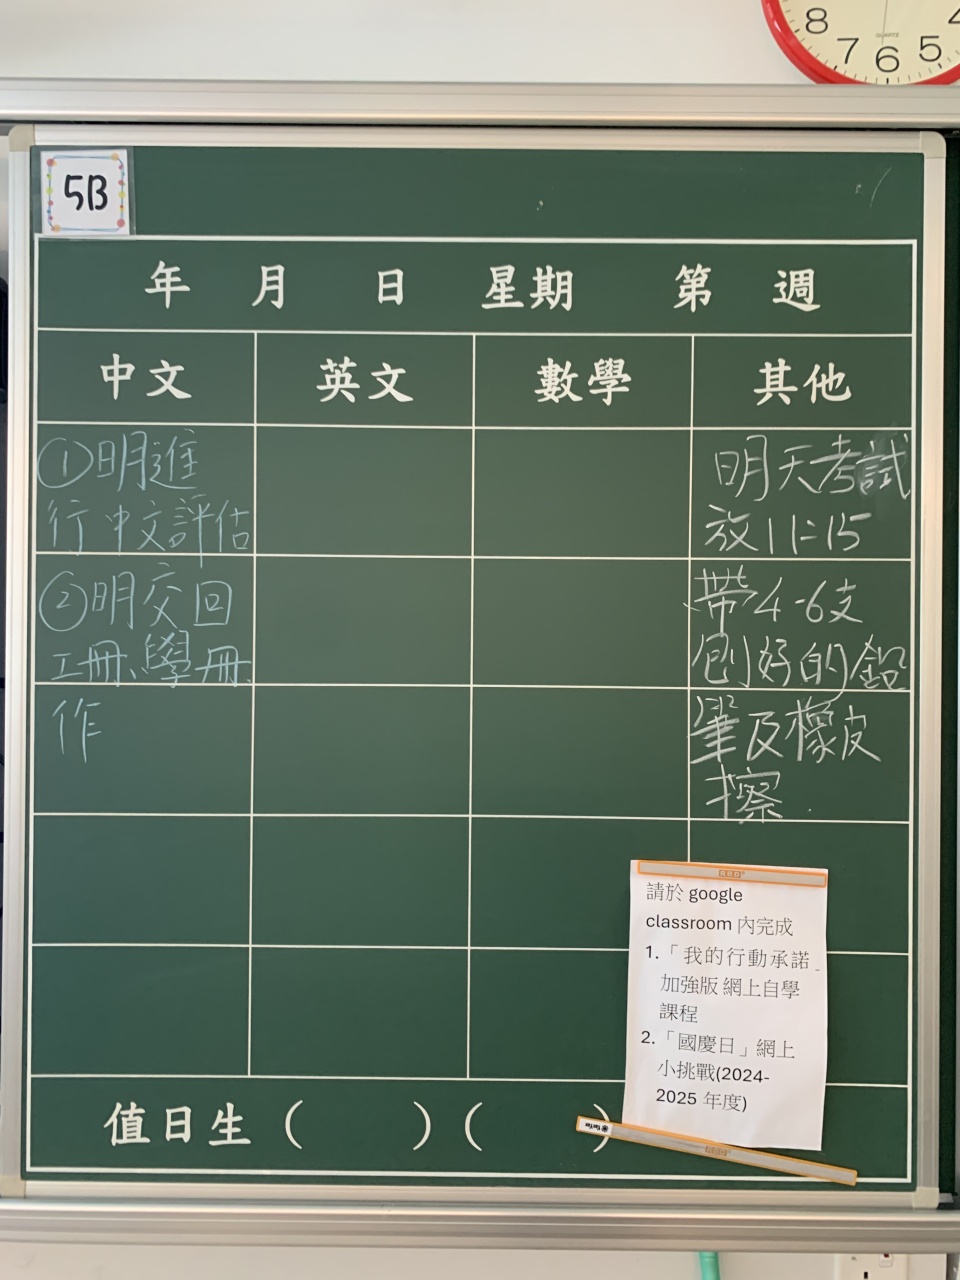 8 7 6 5 4
QUARTZ
5B
年 月 日 星期 第 週
中文 英文 數學 其他
①明進
行中文評估
②明交回
工冊、學冊、
作
明天考試
放11:15
帶4-6支
刨好的鉛
筆及橡皮
擦.
請於 google
classroom 內完成
1.「我的行動承諾」
加強版 網上自學
課程
2.「國慶日」網上
小挑戰(2024-
2025 年度)
值日生 ( ) ( )